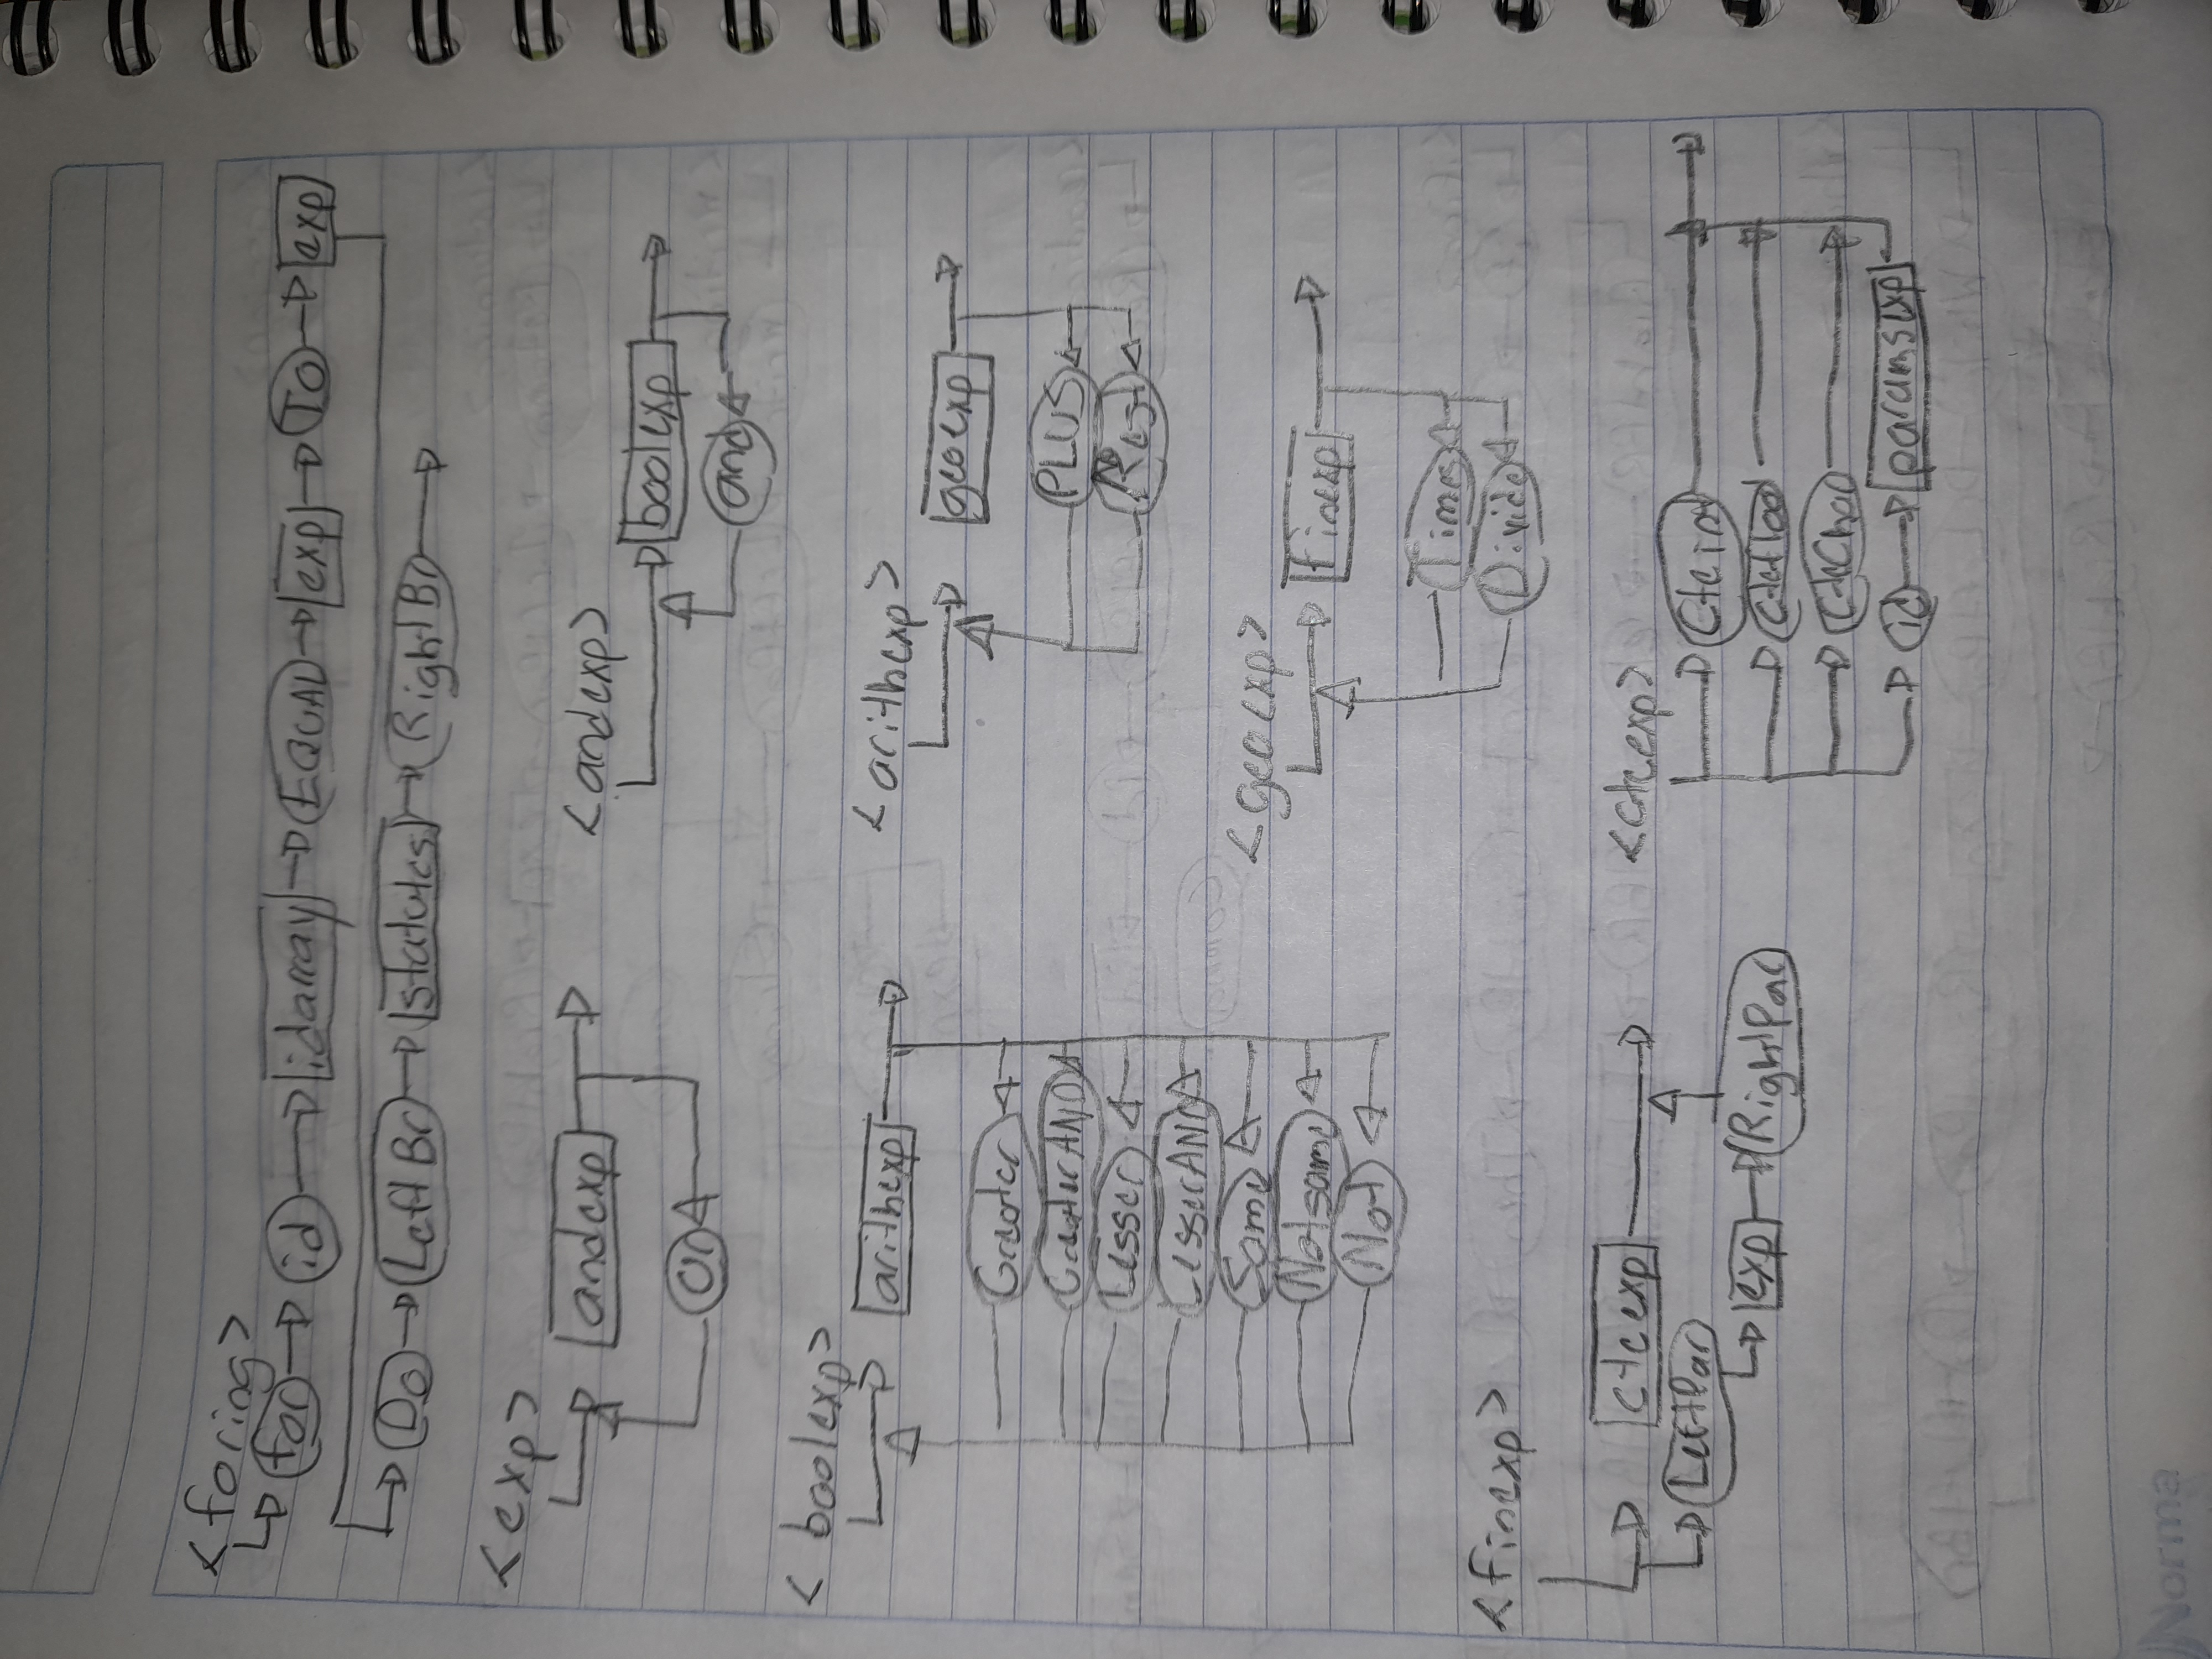 <foring>
for id idarray EQUAL exp TO exp
Do LeftBr statutes RightBr
<exp>
andexp
Or
<andexp>
boolexp
and
<boolexp>
arithexp
Greater
GreaterAND
Lesser
LesserAND
Same
Notsame
Not
<arithexp>
geoexp
PLUS
Rest
<geoexp>
finexp
Times
Divide
<finexp>
cteexp
LeftPar
exp RightPar
<cteexp>
Cteint
cteChar
id paramsexp
Norma